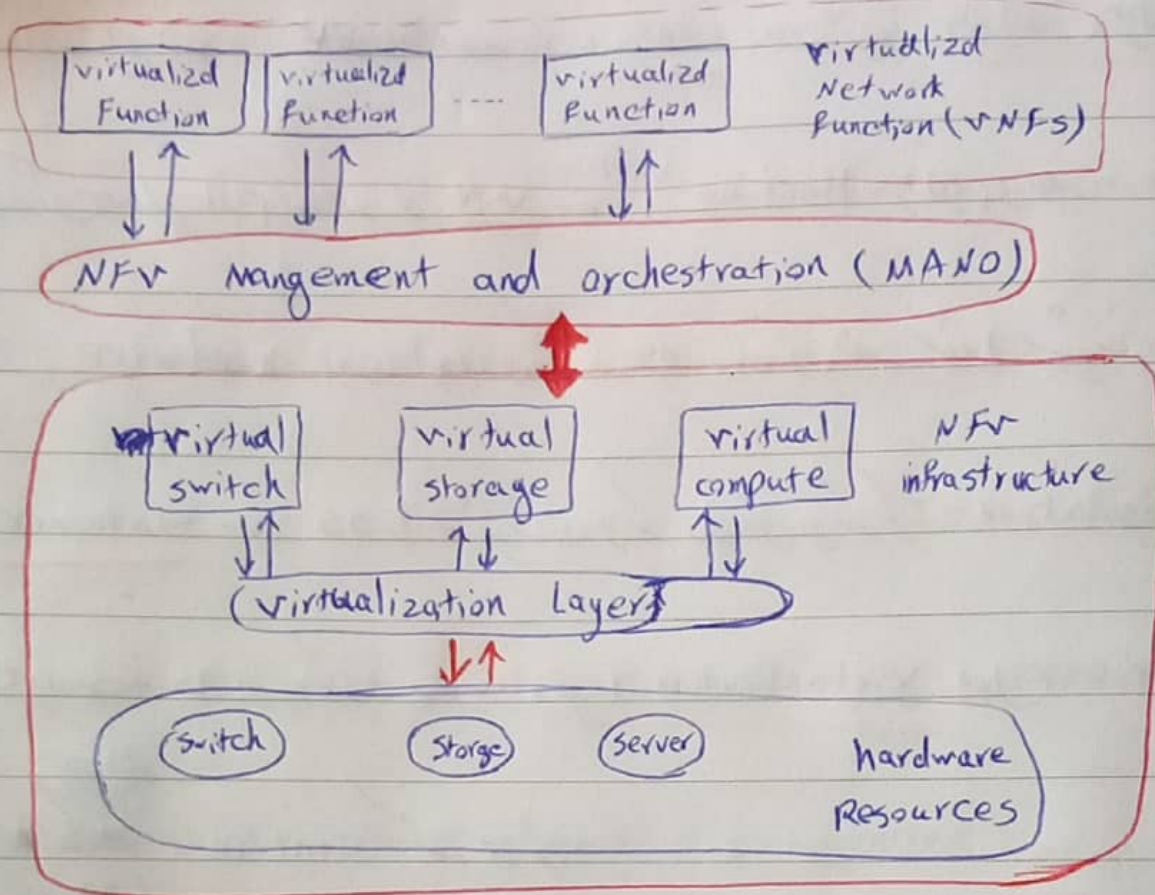 virtualizd
Function
virtualizd
function
.....
virtualizd
function
virtualizd
Network
function (VNFS)
NFV Mangement and orchestration (MANO)
virtual
switch
virtual
storage
virtual
compute
NFV
infrastructure
virtualization Layer
switch
storge
server
hardware
Resources